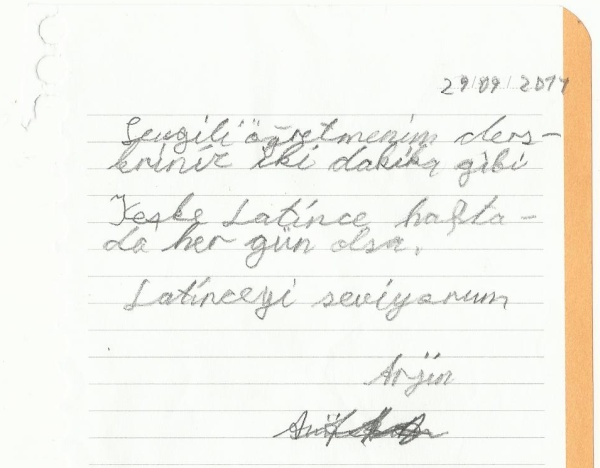 29/09/2011
Sevgili öğretmenim ders-
leriniz iki dakika gibi
Keşke Latince hafta-
da her gün olsa.
Latinceyi seviyorum
Arjin